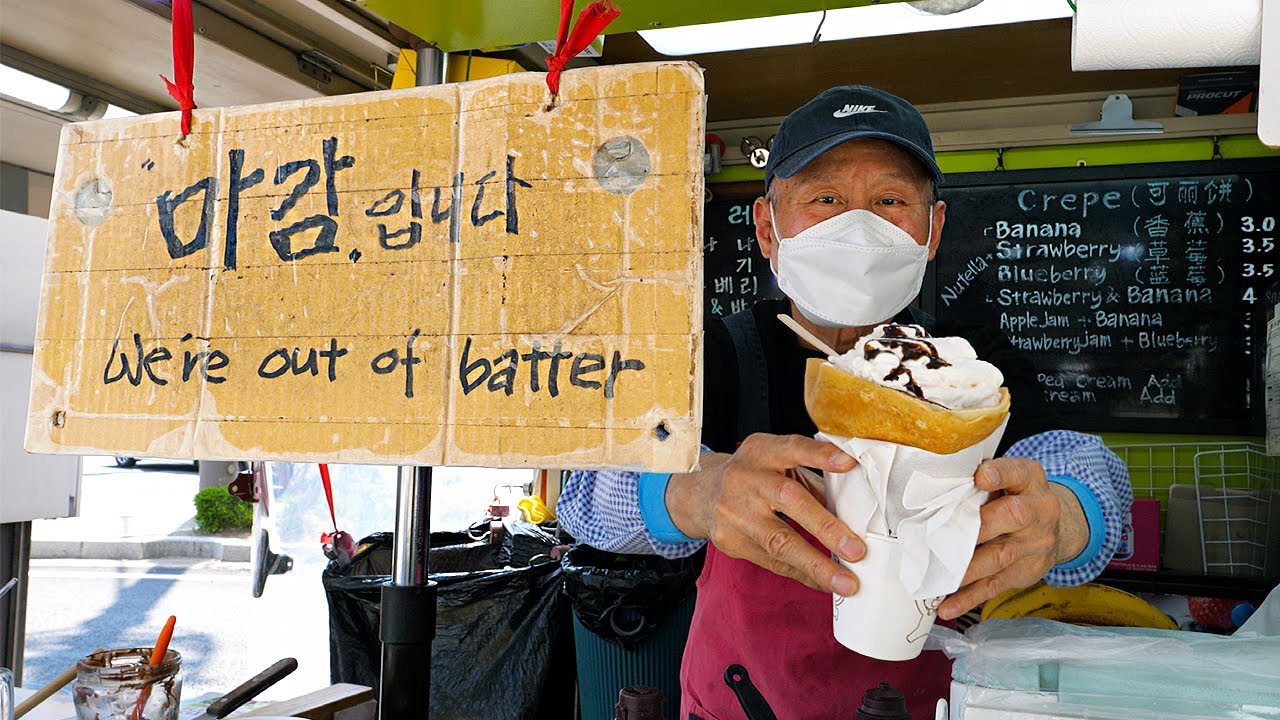 "마감. 입니다
We're out of batter
NIKE
PROCUT
Crepe (可丽饼)
Banana (香蕉) 3.0
Strawberry (草莓) 3.5
Blueberry (蓝莓) 3.5
Nutella+
Strawberry & Banana 4
Apple Jam + Banana
trawberry Jam + Blueberry
Cream Add
ream Add
레
나 나
기
베 리
& 바